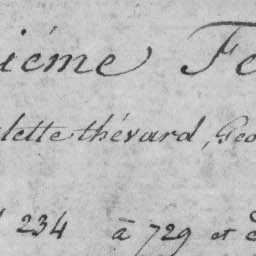 iéme Fe
lette thévard, Geo
234 à 729 et